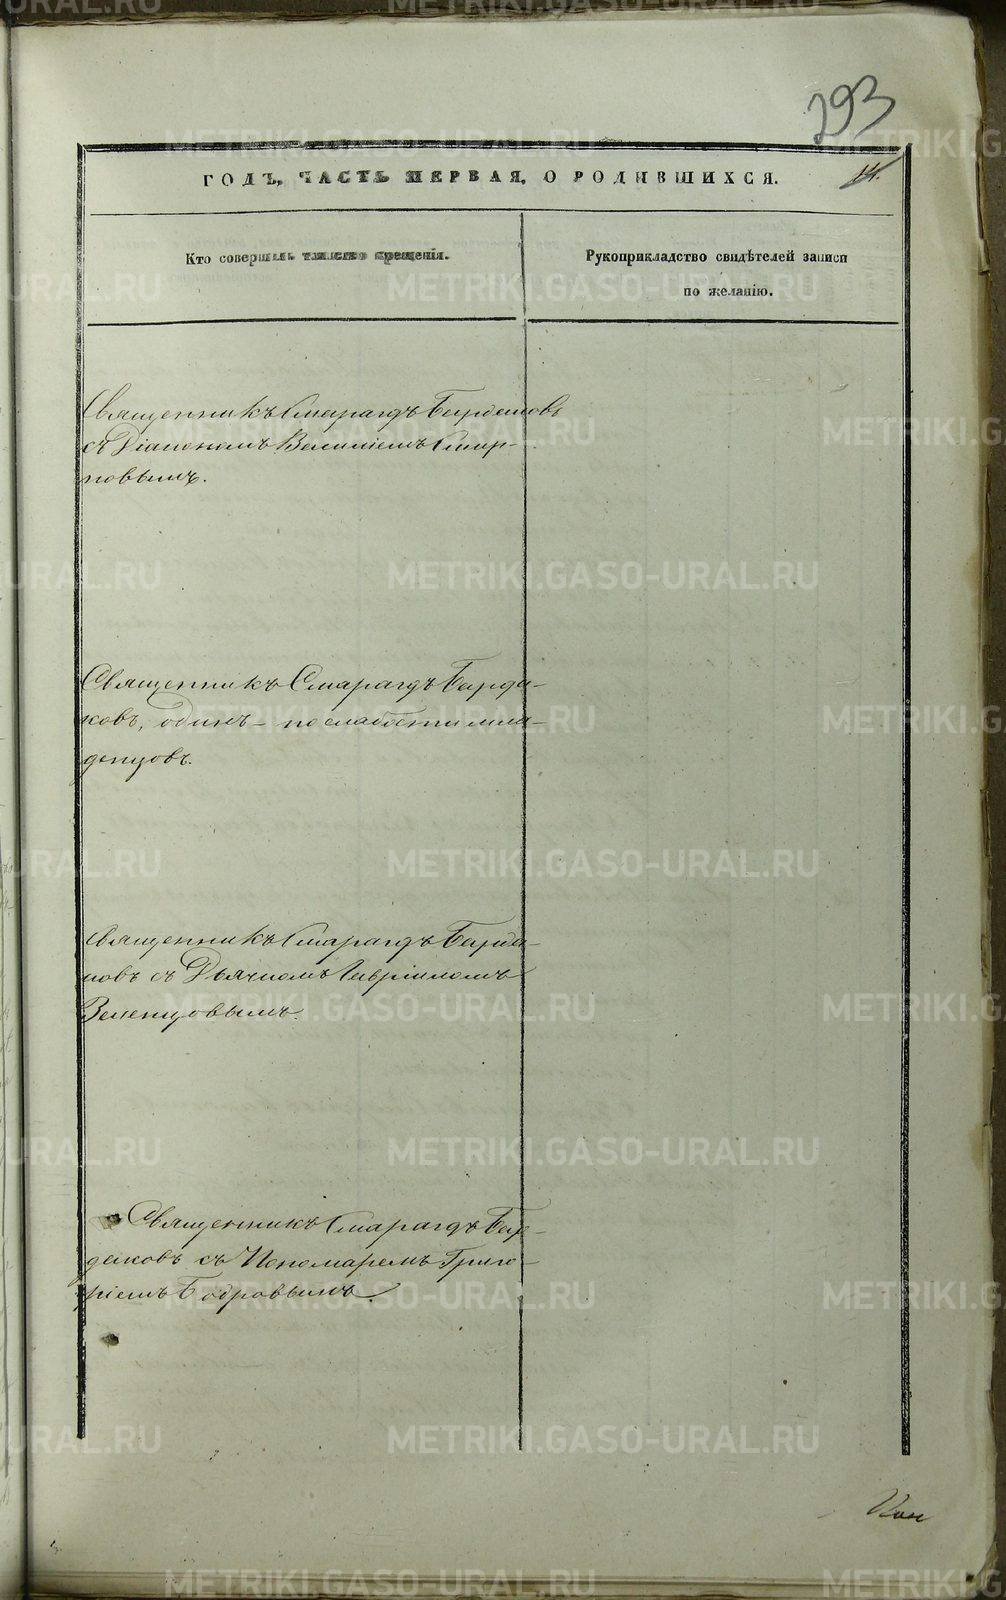 293
ГОДЪ, ЧАСТЬ ПЕРВАЯ, О РОДИВШИХСЯ.
14.
Кто совершалъ таинство крещенія.
Рукоприкладство свидѣтелей записи
по желанію.
Священникъ Смарагдъ Бурдаковъ
съ Діакономъ Василіемъ Смир-
новымъ.
Священникъ Смарагдъ Бурда-
ковъ, одинъ - по слабости мла-
денцовъ.
Священникъ Смарагдъ Бурда-
ковъ съ Дьячкомъ Гавріиломъ
Зеленцовымъ.
Священникъ Смарагдъ Бур-
даковъ съ Пономаремъ Григо-
ріемъ Бодровымъ.
METRIKI.GASO-URAL.RU